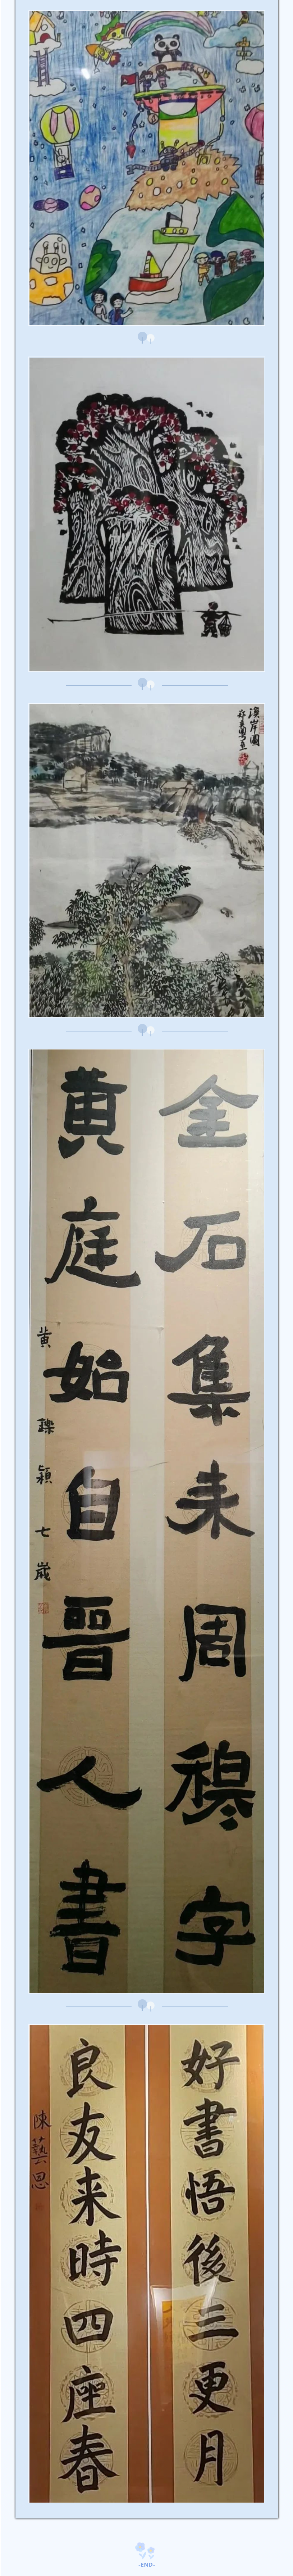 溪岸圖
金石集来周穆字
黄庭始自晉人書
黄鑠穎七歲
好書悟後三更月
良友来時四座春
陳藝恩
-END-